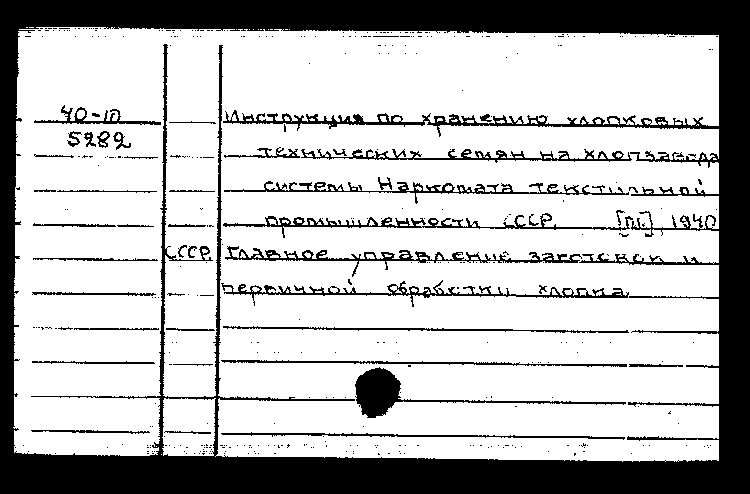 40-III
5282
Инструкция по хранению хлопковых
технических семян на хлопзавода
системы Наркомата текстильной
промышленности СССР. 1940
СССР. Главное управление заготовок и
первичной обработки хлопка